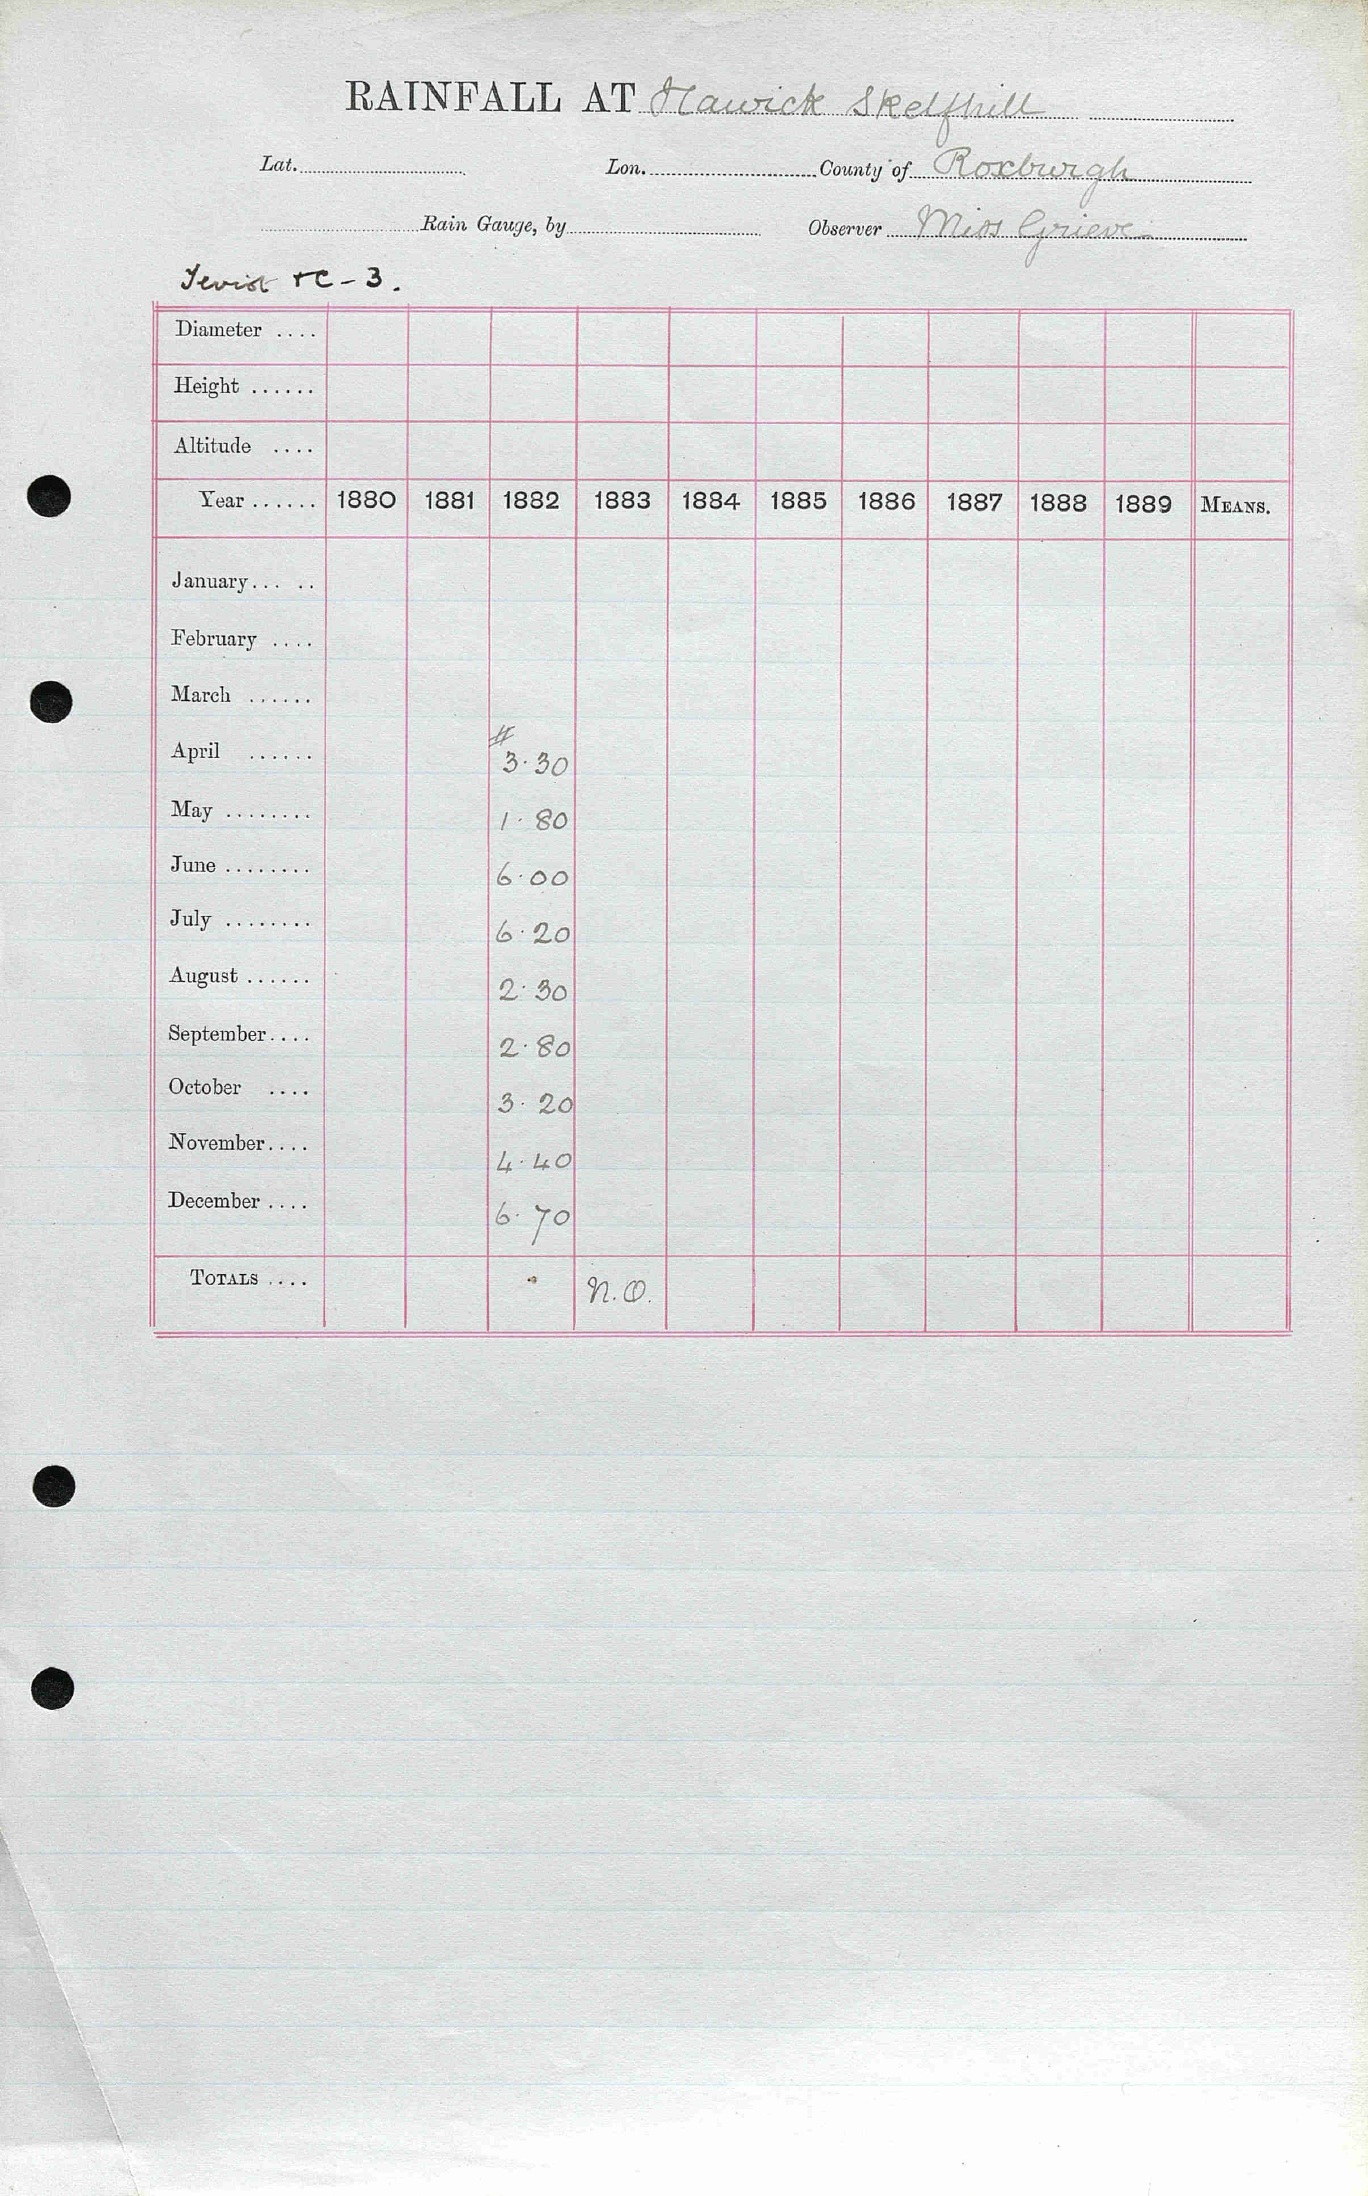 RAINFALL AT Hawick Skelfhill
Lat. Lon. County of Roxburgh
Rain Gauge, by Observer Miss Grieve
Teviot &C - 3.
Diameter ....
Height ......
Altitude ....
Year ...... 1880 1881 1882 1883 1884 1885 1886 1887 1888 1889 MEANS.
January... ..
February ....
March ......
April ...... # 3.30
May ........ 1.80
June ........ 6.00
July ........ 6.20
August ...... 2.30
September.... 2.80
October .... 3.20
November.... 4.40
December .... 6.70
TOTALS .... N.O.